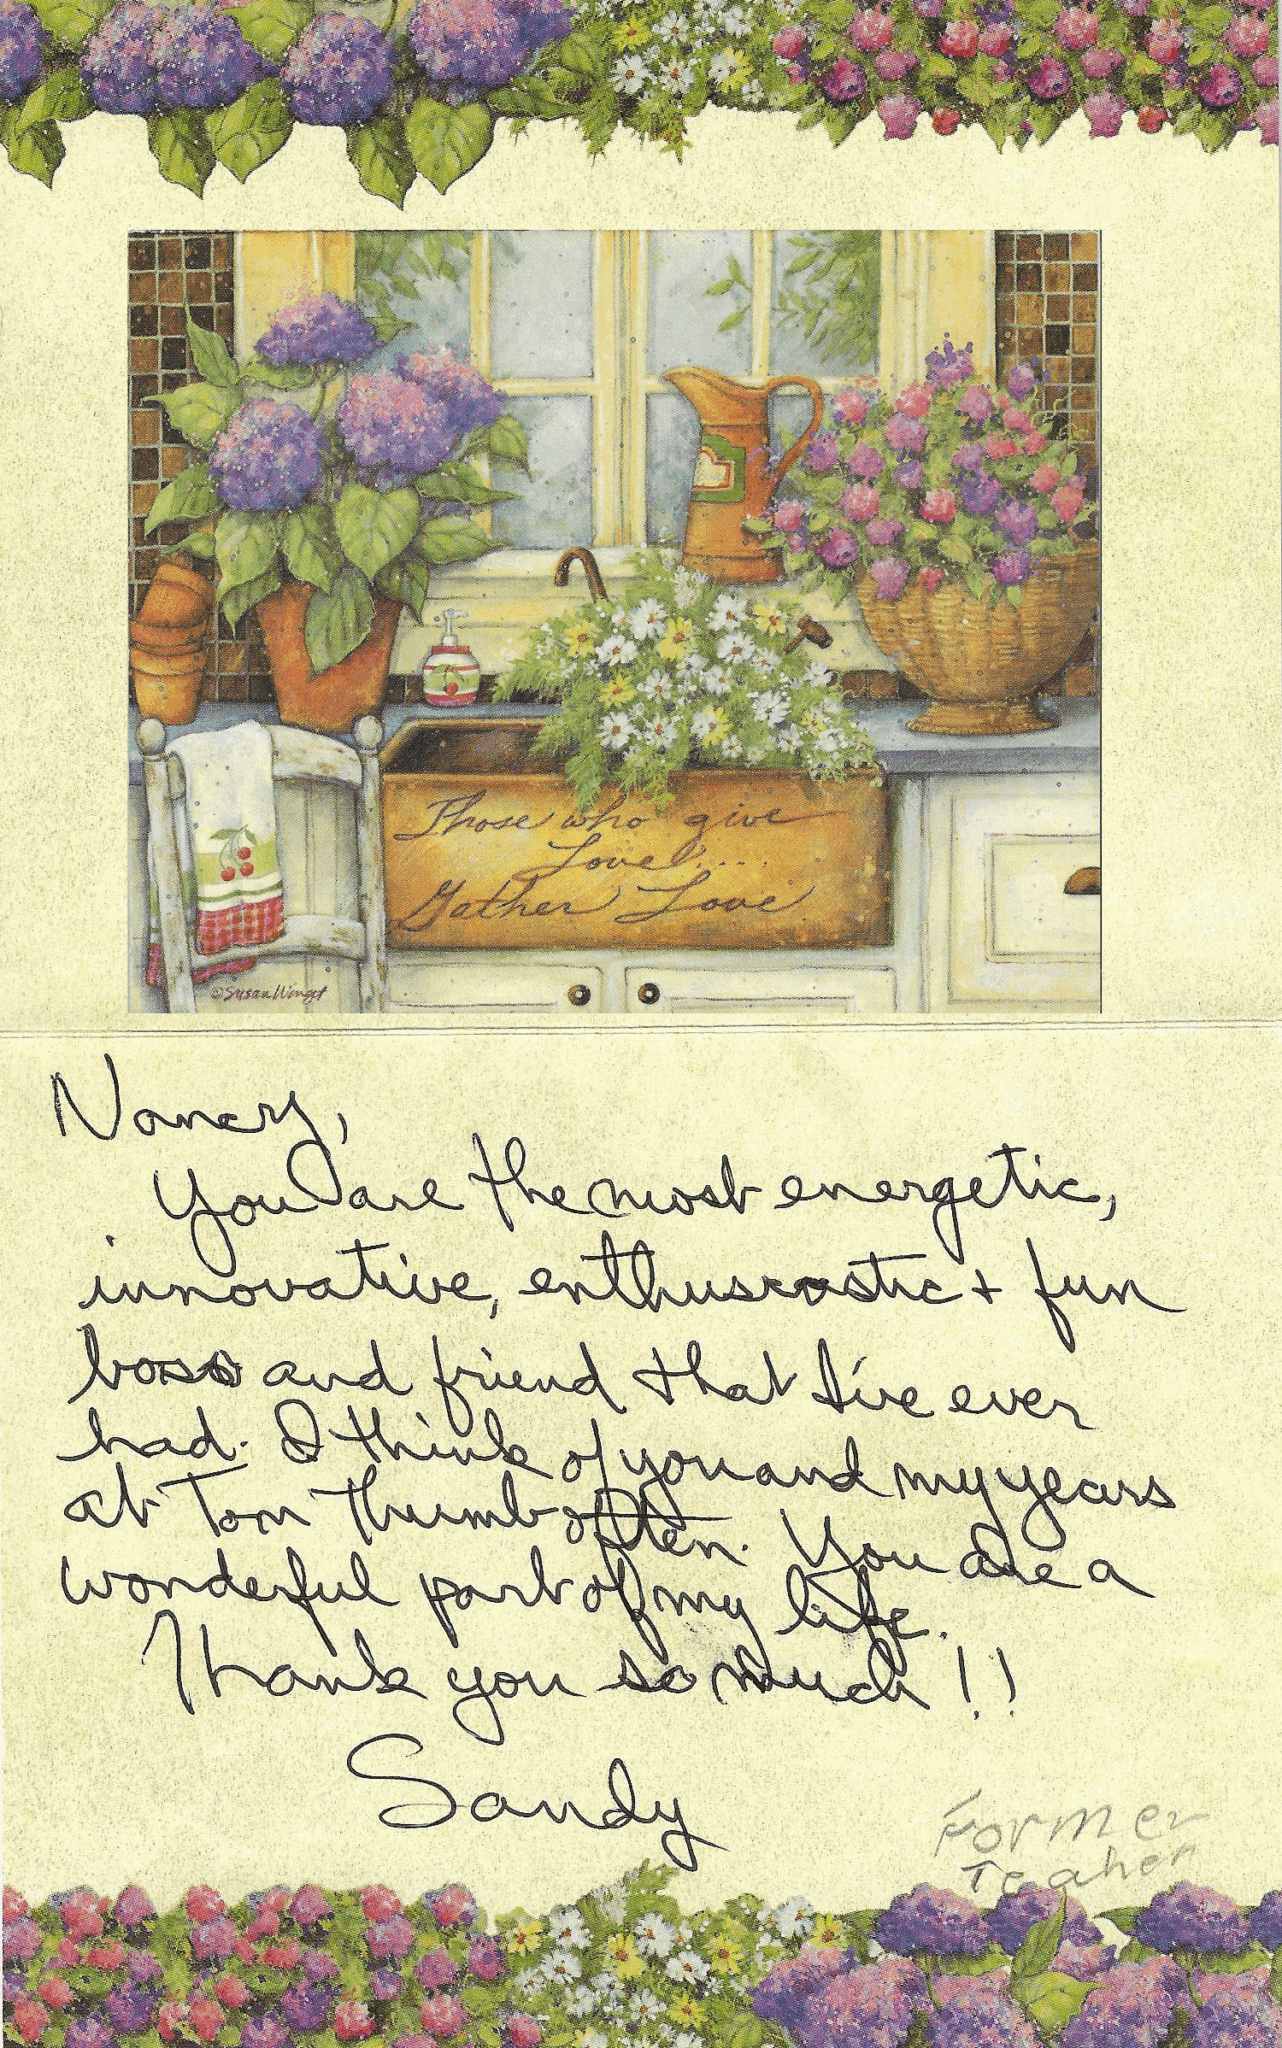 Those who give
Love....
Gather Love
©Susan Winget
Nancy,
You are the most energetic,
innovative, enthusiastic + fun
boss and friend that I've ever
had. I think of you and my years
at Tom Thumb often. You are a
wonderful part of my life.
Thank you so much!!
Sandy
Former
Teaher